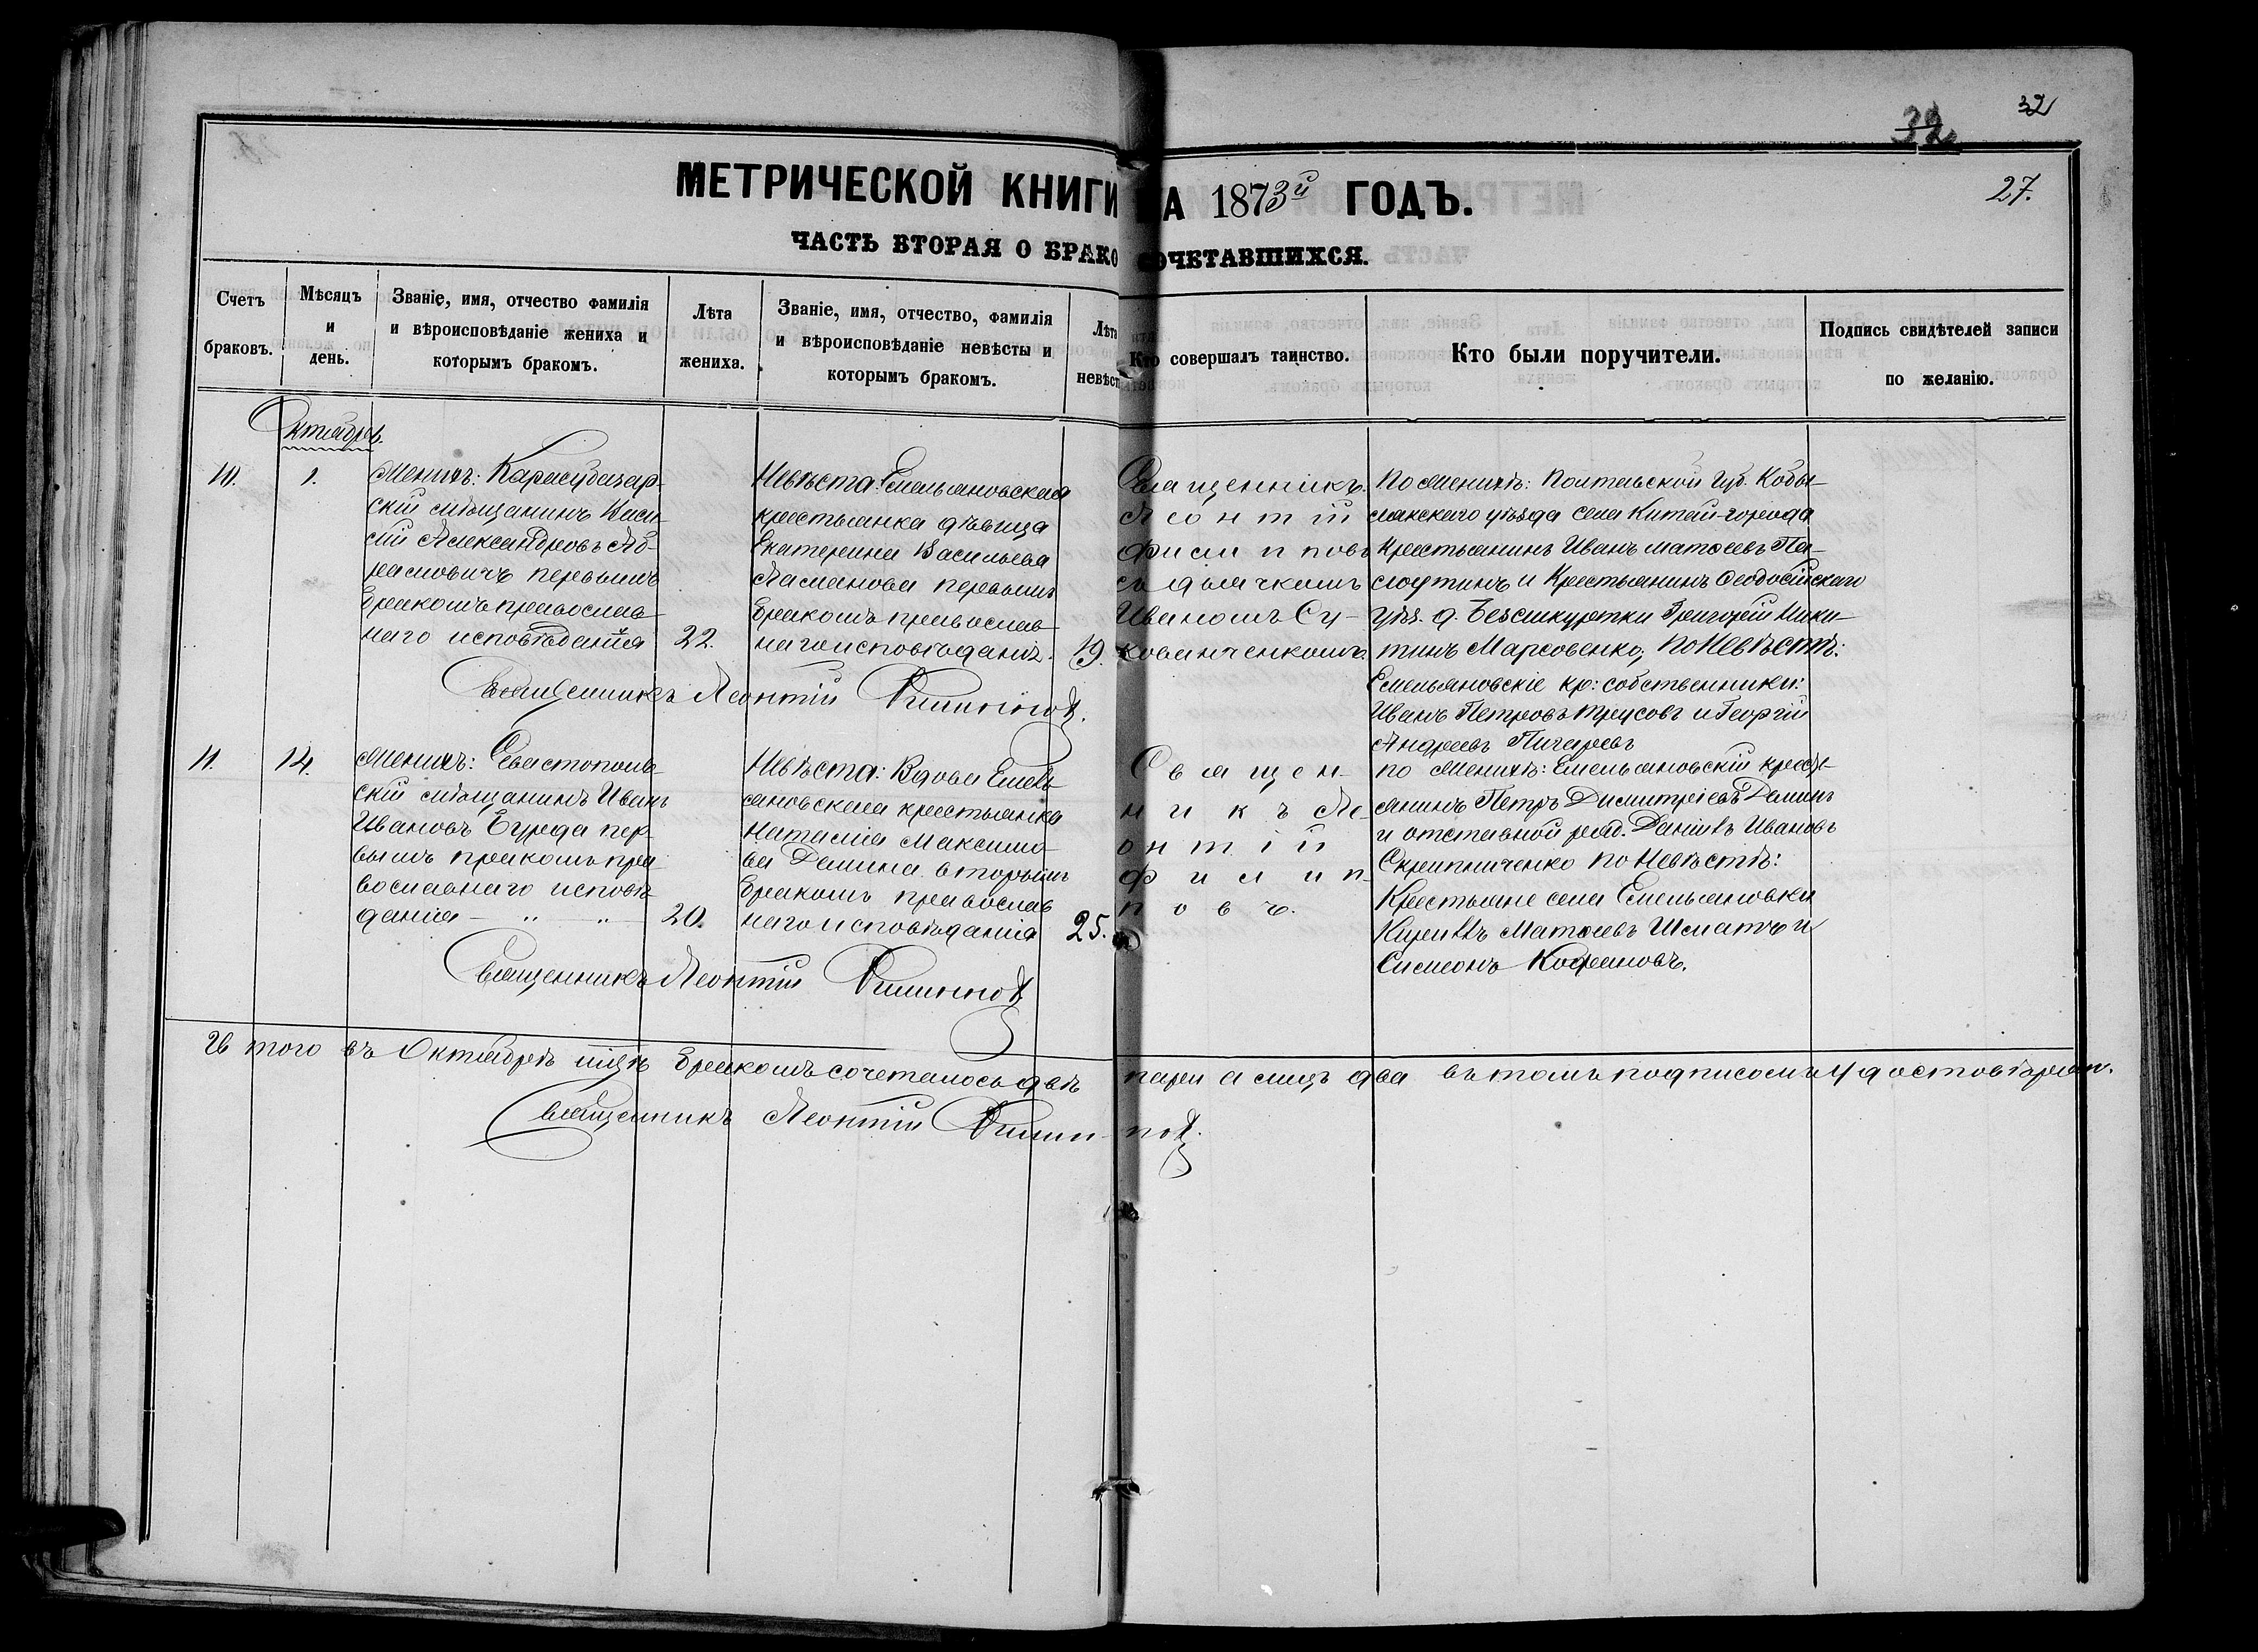 32
32
27.
МЕТРИЧЕСКОЙ КНИГИ НА 1873й ГОДЪ.
ЧАСТЬ ВТОРАЯ О БРАКОСОЧЕТАВШИХСЯ.
Счетъ браковъ.
Мѣсяцъ и день.
Званіе, имя, отчество фамилія и вѣроисповѣданіе жениха и которымъ бракомъ.
Лѣта жениха.
Званіе, имя, отчество, фамилія и вѣроисповѣданіе невѣсты и которымъ бракомъ.
Лѣта невѣст
Кто совершалъ таинство.
Кто были поручители.
Подпись свидѣтелей записи по желанію.
Октябрь.
10.
1.
Женихъ: Карасубазар-
скій мѣщанинъ Васи-
лій Александровъ Аб-
рамовичъ первымъ
бракомъ православ-
наго исповѣданія
22.
Невѣста: Емельяновская
крестьянка дѣвица
Екатерина Васильева
первымъ
бракомъ православ-
наго исповѣдан.
19.
Священникъ
Леонтій
Филипповъ
съ дьячкомъ
Иваномъ Су-
кованченкомъ
По женихѣ: Полтавской губ. Кобы-
лякскаго уѣзда села Китай-города
Крестьянинъ Иванъ Матѳеевъ Па-
слутинъ и Крестьянинъ Ѳеодосійскаго
уѣз. д. Григорій Ники-
тинъ Марковенко; по невѣстѣ:
Емельяновскіе кр: собственники:
Иванъ Петровъ Трусовъ и Георгій
Андреевъ Пичаревъ
Священникъ Леонтій Филипповъ
11.
14.
Женихъ: Севастополь-
скій мѣщанинъ Иванъ
Ивановъ Бурда пер-
вымъ бракомъ пра-
вославнаго исповѣ-
данія – „ „ –
20.
Невѣста: Вдова Емель-
яновская крестьянка
Наталія Максимо-
ва Демина вторымъ
бракомъ православ
наго исповѣданія
25.
Священ-
никъ Ле-
онтій
Филип-
повъ.
по женихѣ: Емельяновскій кресть-
янинъ Петръ Димитріевъ Деминъ
и отставной ряд. Даніилъ Ивановъ
Скрипниченко по невѣстѣ:
Крестьяне села Емельяновки
Кириллъ Матѳеевъ Шматъ и
Симеонъ Кофановъ.
Священникъ Леонтій Филипповъ
И того въ Октябрѣ мцѣ бракомъ сочеталось двѣ пары а лицъ два въ томъ подписомъ удостовѣряю.
Священникъ Леонтій Филип-повъ.